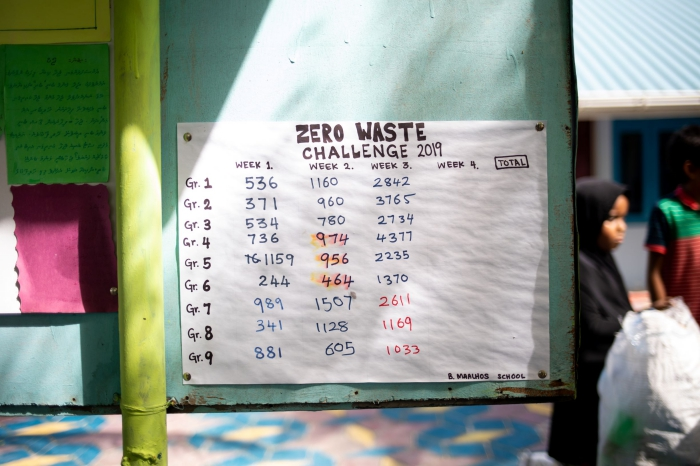 ZERO WASTE
CHALLENGE 2019
WEEK 1. WEEK 2. WEEK 3. WEEK 4. TOTAL
Gr. 1 536 1160 2842
Gr. 2 371 960 3765
Gr. 3 534 780 2734
Gr. 4 736 974 4377
Gr. 5 1159 956 2235
Gr. 6 244 464 1370
Gr. 7 989 1507 2611
Gr. 8 341 1128 1169
Gr. 9 881 605 1033
B. MAALHOS SCHOOL